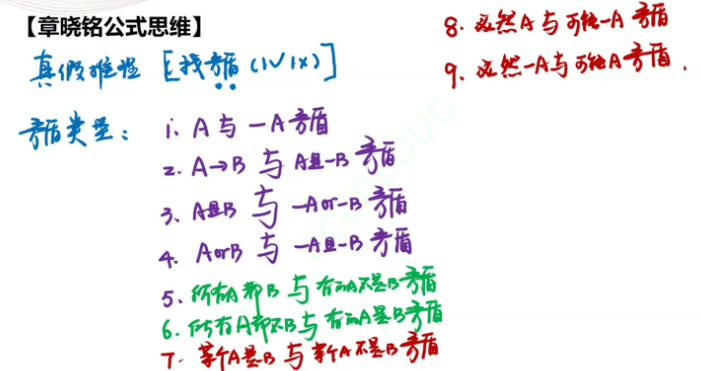 【章晓铭公式思维】
真假推理 [找矛盾 (1√1×)]
矛盾类型：
1. A 与 -A 矛盾
2. A→B 与 A且-B 矛盾
3. A且B 与 -A or -B 矛盾
4. A or B 与 -A且-B 矛盾
5. 所有A都B 与 有的A不是B 矛盾
6. 所有A都不B 与 有的A是B 矛盾
7. 某个A是B 与 某个A不是B 矛盾
8. 必然A 与 可能-A 矛盾
9. 必然-A 与 可能A 矛盾.